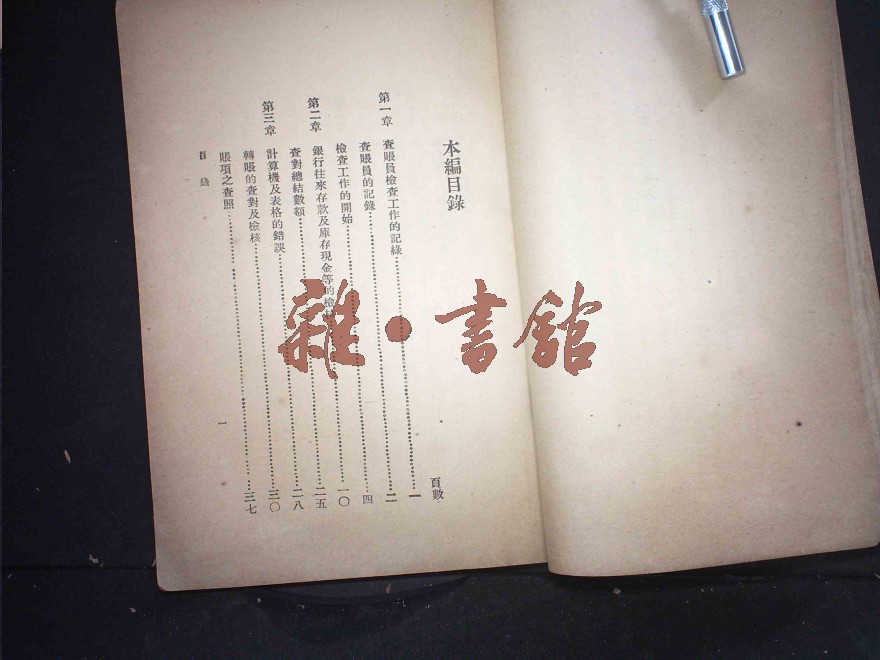 本編目錄
頁數
第一章 查賬員檢查工作的記錄……一
查賬員的記錄……二
檢查工作的開始……四
第二章 銀行往來存款及庫存現金等的檢……一〇
查對總結數額……二五
第三章 計算機及表格的錯誤……二八
轉賬的查對及檢核……三〇
賬項之查照……三七
目錄
一
雜·書舘